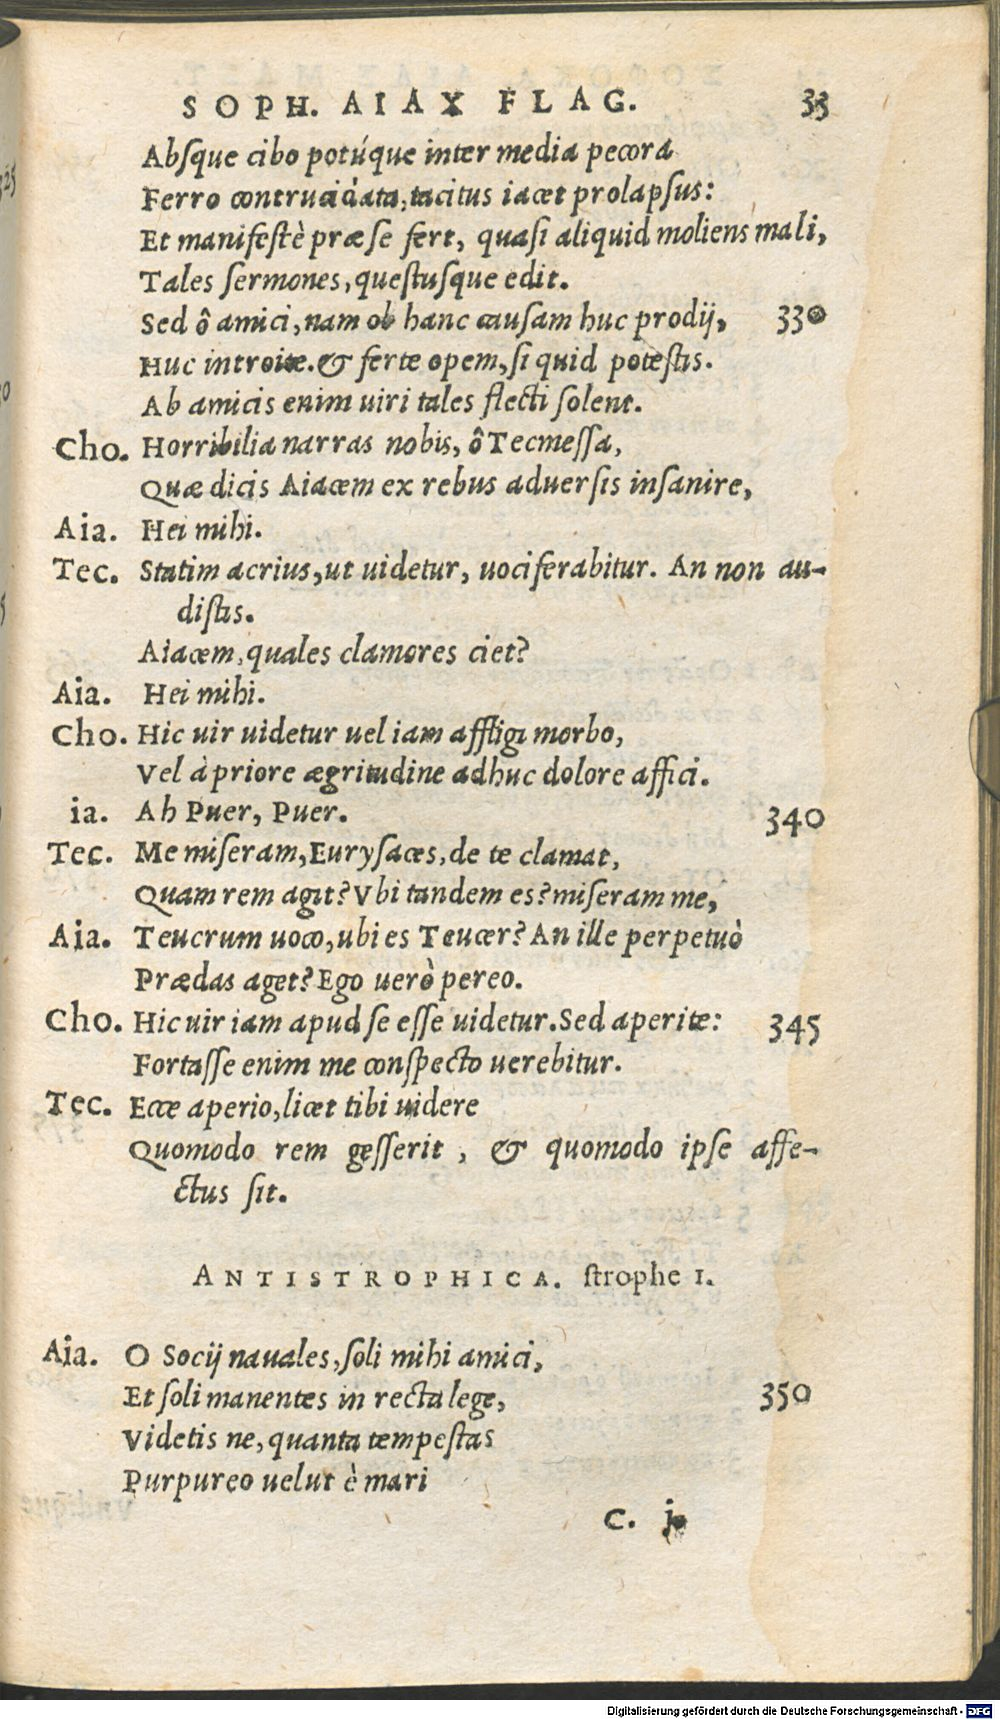 SOPH. AIAX FLAG. 33
Absque cibo potúque inter media pecora
Ferro contrucidata, tacitus iacet prolapsus:
Et manifestè præ se fert, quasi aliquid moliens mali,
Tales sermones, questusque edit.
Sed ô amici, nam ob hanc causam huc prodij, 330
Huc introite. & ferte opem, si quid potestis.
Ab amicis enim uiri tales flecti solent.
Cho. Horribilia narras nobis, ô Tecmessa,
Quæ dicis Aiacem ex rebus aduersis insanire,
Aia. Hei mihi.
Tec. Statim acrius, ut uidetur, uociferabitur. An non au-
distis.
Aiacem, quales clamores ciet?
Aia. Hei mihi.
Cho. Hic uir uidetur uel iam affligi morbo,
Vel à priore ægritudine adhuc dolore affici.
ia. Ah Puer, Puer. 340
Tec. Me miseram, Eurysaces, de te clamat,
Quam rem agit? Vbi tandem es? miseram me,
Aia. Teucrum uoco, ubi es Teucer? An ille perpetuò
Prædas aget? Ego uerò pereo.
Cho. Hic uir iam apud se esse uidetur. Sed aperite: 345
Fortasse enim me conspecto uerebitur.
Tec. Ecce aperio, licet tibi uidere
Quomodo rem gesserit, & quomodo ipse affe-
ctus sit.
ANTISTROPHICA. strophe 1.
Aia. O Socij nauales, soli mihi amici,
Et soli manentes in recta lege, 350
Videtis ne, quanta tempestas
Purpureo uelut è mari
C. j
Digitalisierung gefördert durch die Deutsche Forschungsgemeinschaft - DFG